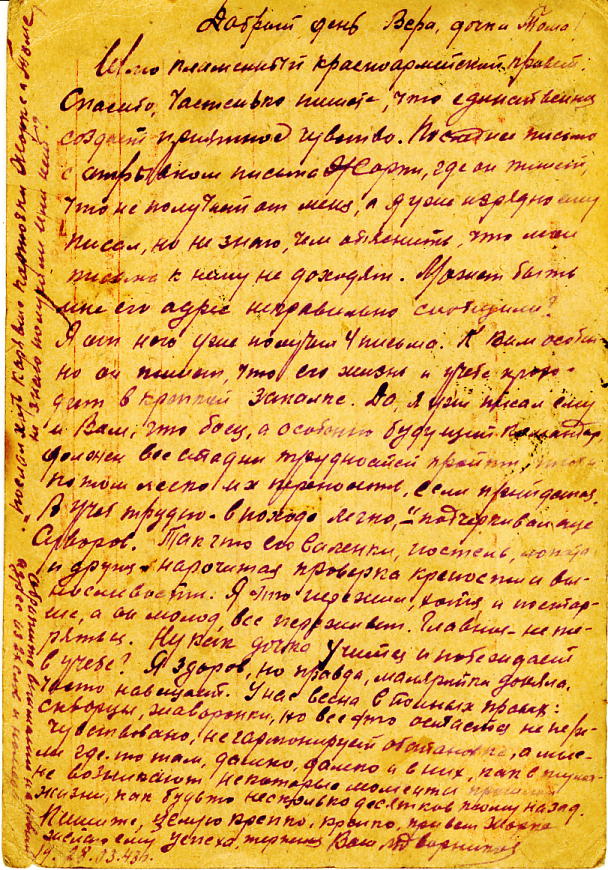 Добрый день Вера, дочка Тома!
Шлю пламенный красноармейский привет.
Спасибо, частенько пишете, что единственно
создает приятное чувство. Последнее письмо
с отрывком письма Жоржи, где он пишет,
что не получает от меня, а я уже изрядно ему
писал, но не знаю, чем объяснить, что мои
письма к нему не доходят. Может быть
мне его адрес неправильно сообщили?
Я от него уже получил 4 письма. К Вам особен-
но он пишет, что его жизнь и учеба прохо-
дит в крепкой закалке. Да, я уже писал ему
и Вам, что боец, а особенно будущий командир
должен все стадии трудностей пройти, чтобы
потом легко их переносить, если придется.
В учебе трудно - в походе легко," - подчеркивал еще
Суворов. Так что его валенки, постель,
и другие - нарочитая проверка крепости и вы-
носливости. Я это пережил, хотя и постар-
ше, а он молод, все переживет. Главное - не те-
ряться. Ну как дочка учится и побеждает
в учебе? Я здоров, но правда, малярийка доняла,
часто навещает. У нас весна в полных правах:
скворцы, жаворонки, но все это остается не при-
чувствовано, не гармонирует обстановка, а мыс-
ли где-то там, далеко, далеко и в них, как в тумане
возникают некоторые моменты прошлой
жизни, как будто несколько десятков тому назад.
Пишите, целую крепко, крепко, привет Жорже
желаю ему успеха, терпения Ваш Дворников
14. 28.03.43г.
послал
не знаю получили или нет?